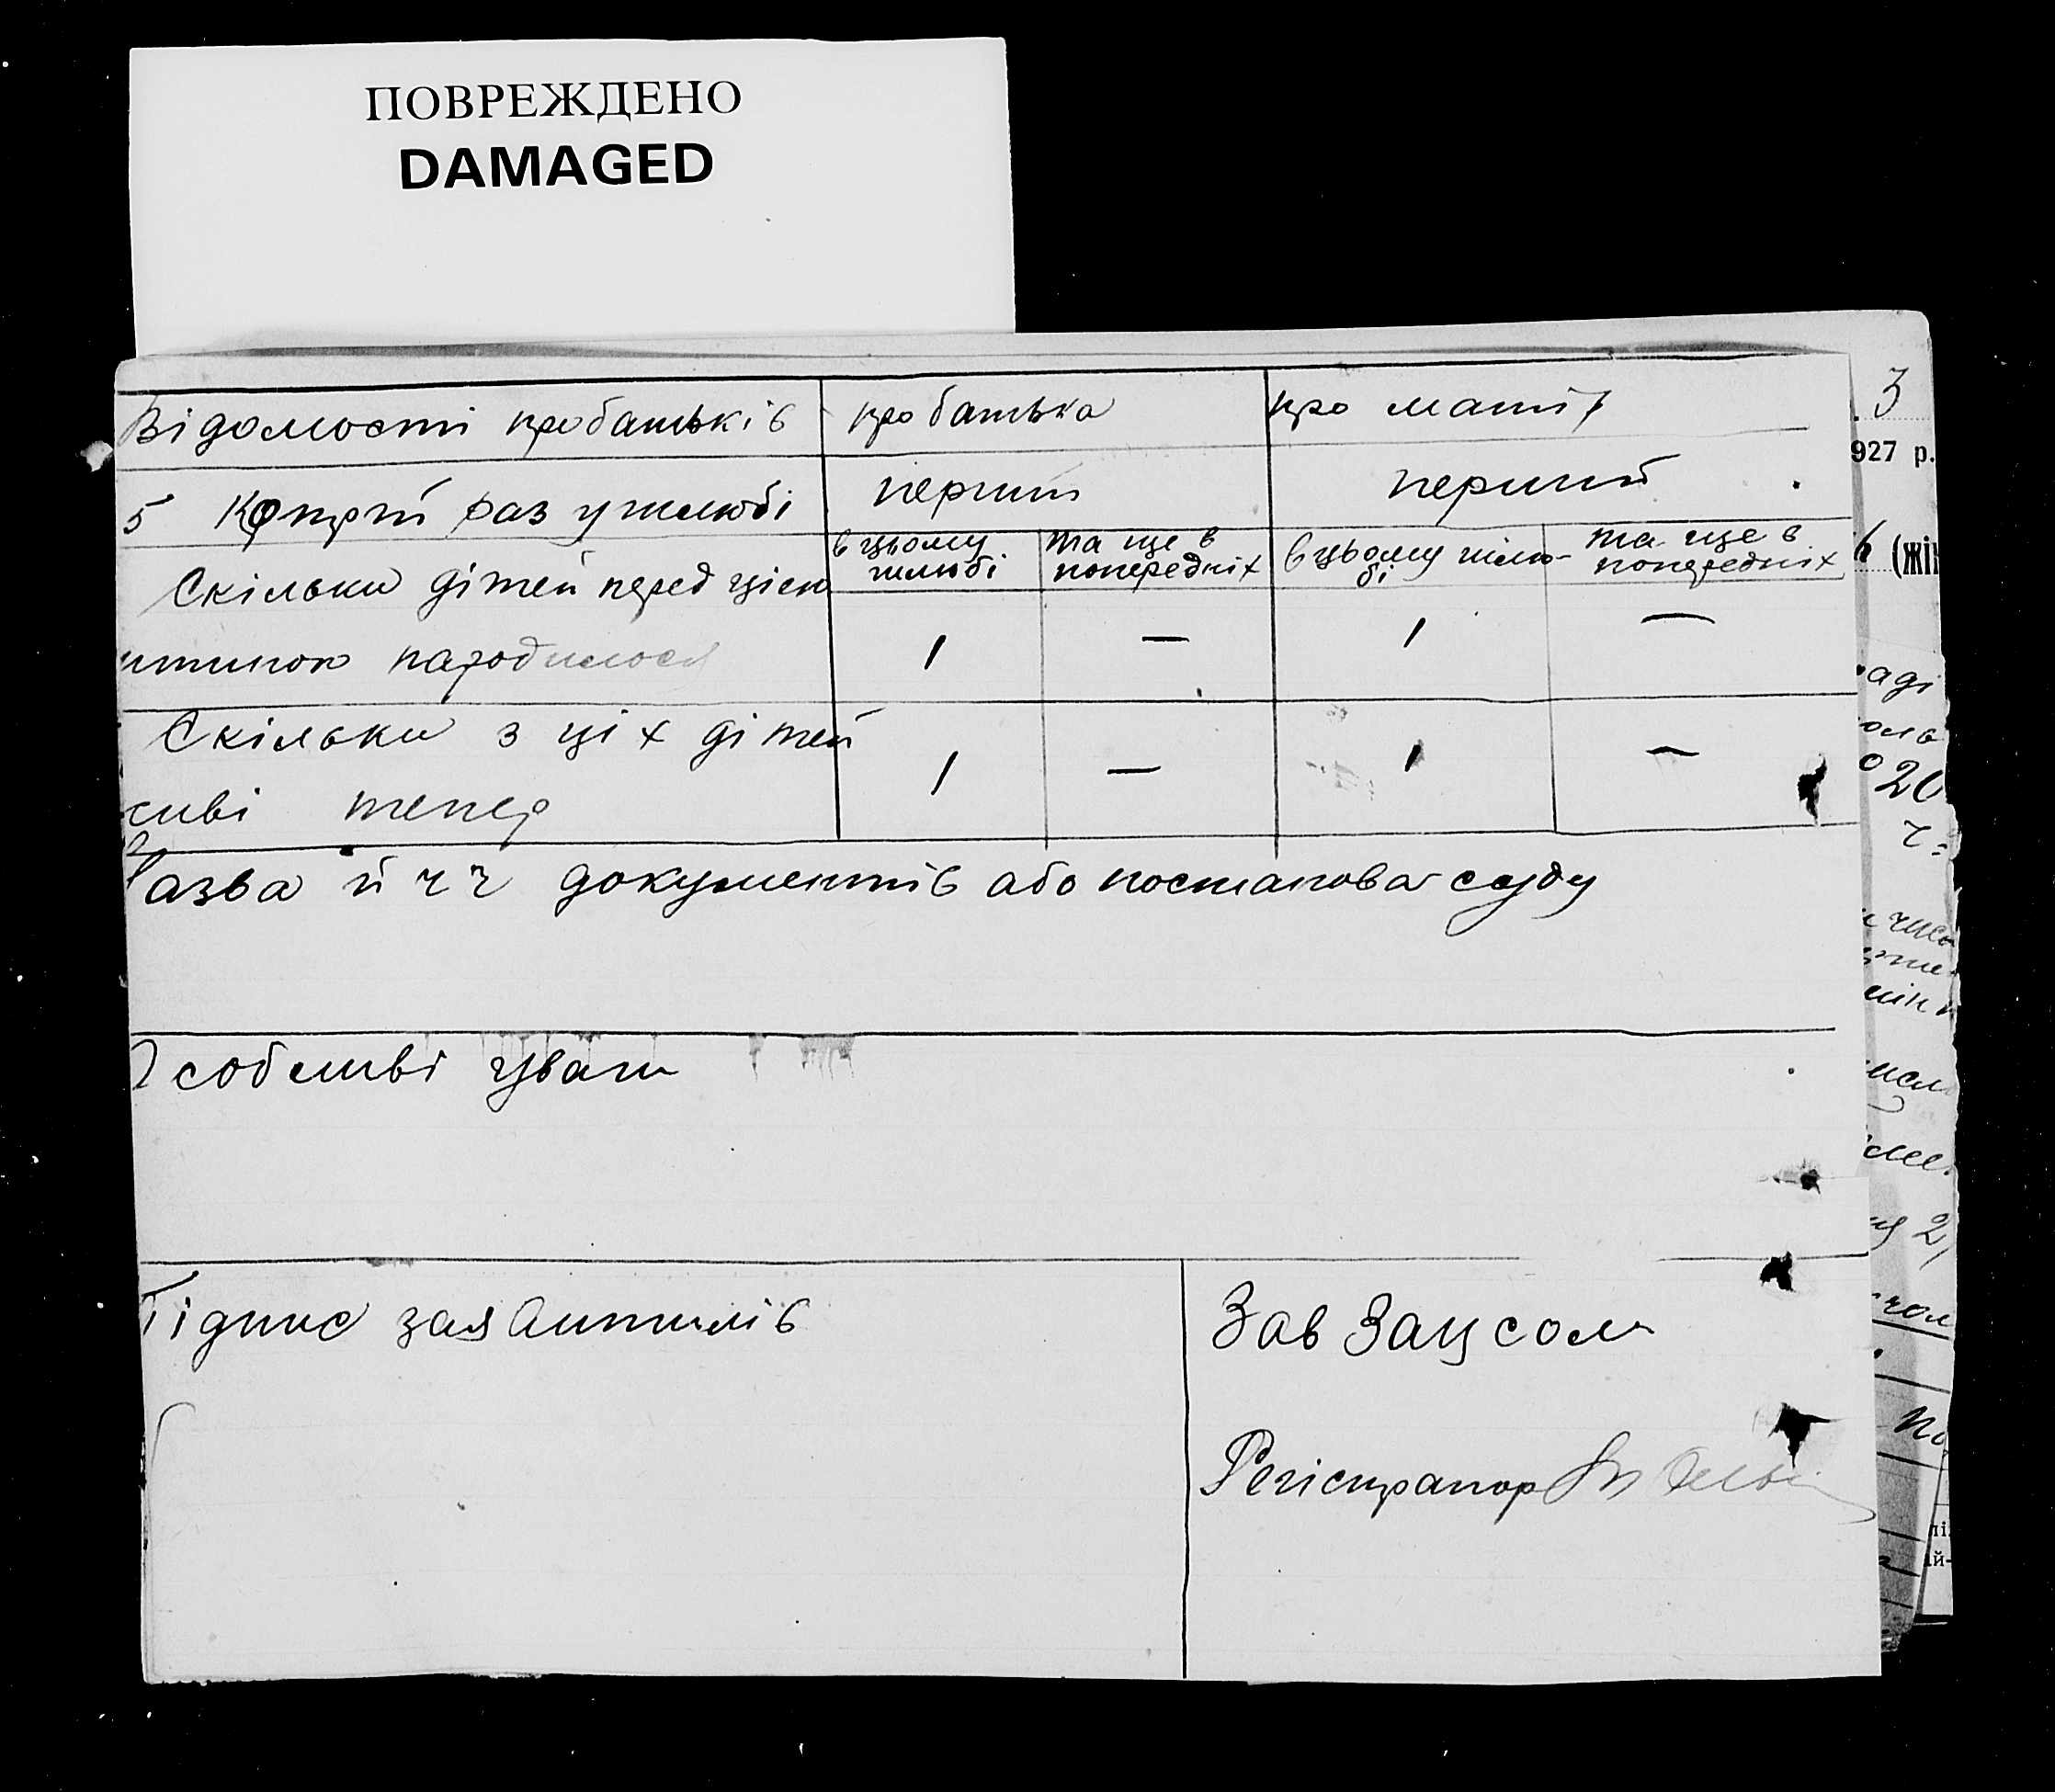 ПОВРЕЖДЕНО
DAMAGED
Відомості про батьків про батька про матір
5 Котрий раз у шлюбі перший перший
Скільки дітей перед цією
в цьому шлюбі та ще в попередніх в цьому шлю-бі та ще в попередніх
итиною народилося 1 — 1 —
Скільки з ціх дітей
живі тепер 1 — 1 —
Назва й чч документів або постанова суду
Особливі уваги
Підпис заявителів Зав Загсом
Регістратор
3
927 р.
(жі
аді
оль
20